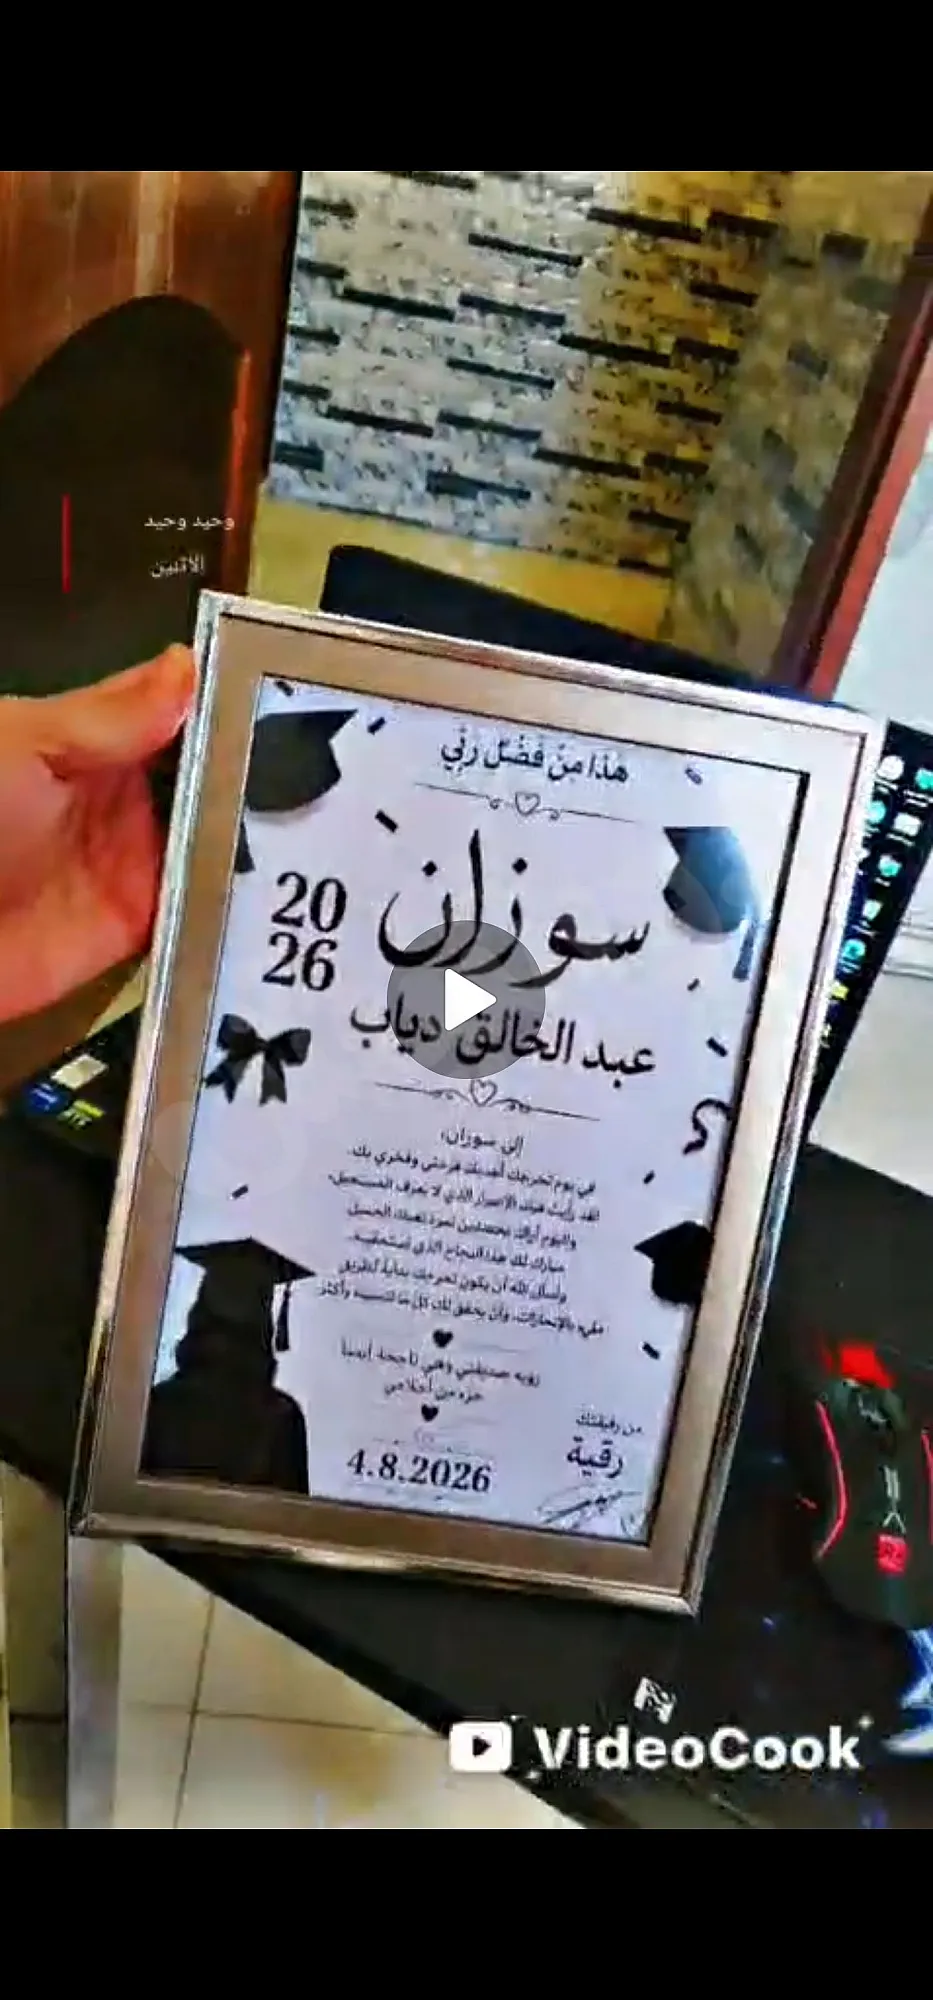 وحيد وحيد
الاثنين
هَذَا مِنْ فَضْلِ رَبِّي
سوزان
20
26
عبد الخالق دياب
إلى سوزان،
في يوم تخرجك أهديك فرحتي وفخري بك.
لقد رأيت فيك الإصرار الذي لا يعرف المستحيل،
واليوم أراك تحصدين ثمرة تعبك الجميل
مبارك لك هذا النجاح الذي استحقيته.
وأسأل الله أن يكون تخرجك بداية لطريق
مليء بالإنجازات، وأن يحقق لك كل ما تتمنيه وأكثر
رؤية صديقتي وهي ناجحة أيضاً
جزء من أحلامي
من رفيقتك
رقية
4.8.2026
VideoCook